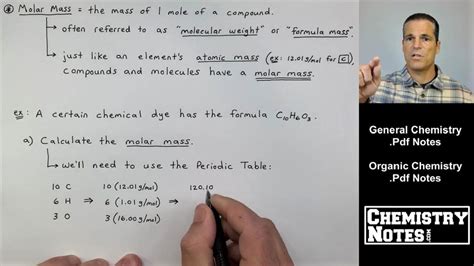 Molar Mass = the mass of 1 mole of a compound.
often referred to as "molecular weight" or "formula mass"
just like an element's atomic mass (ex: 12.01 g/mol for C)
compounds and molecules have a molar mass.
ex: A certain chemical dye has the formula C₁₀H₆O₃.
a) Calculate the molar mass.
we'll need to use the Periodic Table:
10 C 10 (12.01 g/mol) 120.10
6 H ⇒ 6 (1.01 g/mol) ⇒
3 O 3 (16.00 g/mol)
General Chemistry
.Pdf Notes
Organic Chemistry
.Pdf Notes
CHEMISTRY
NOTES.COM